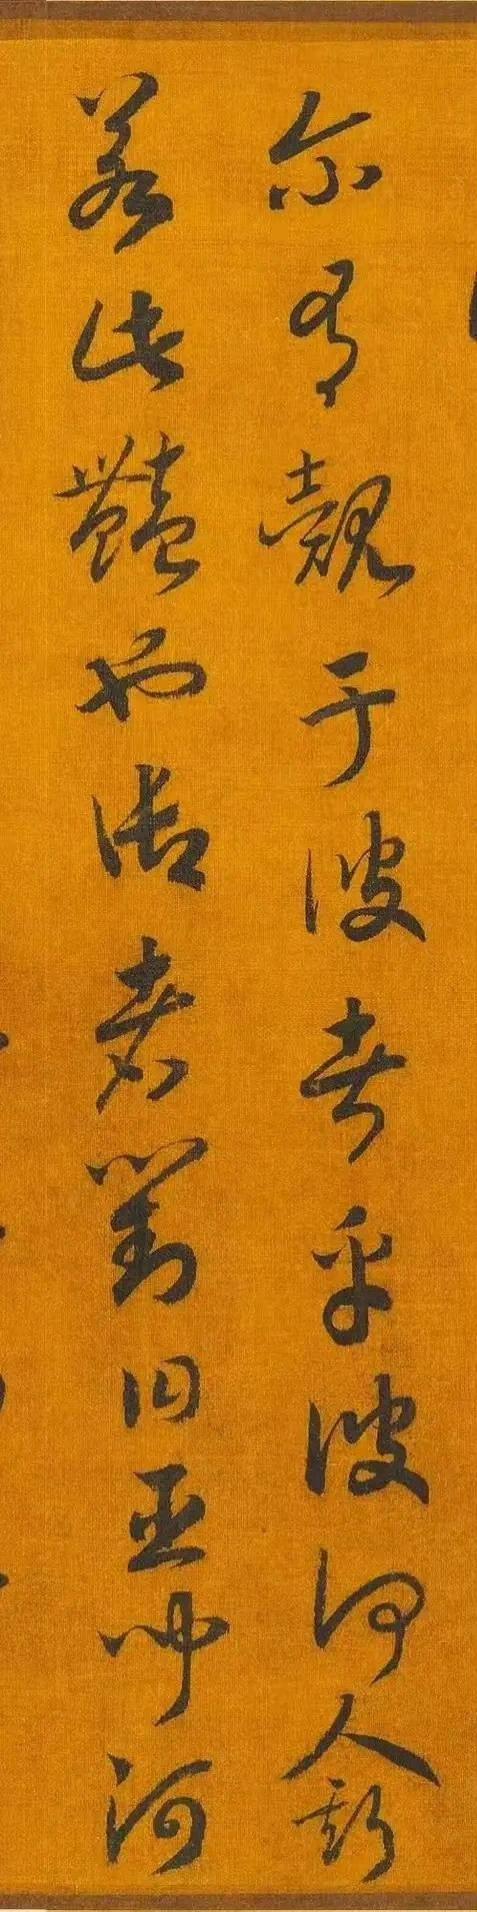 尔有觌于彼者乎彼何人斯
若此艳也御者对曰臣闻河